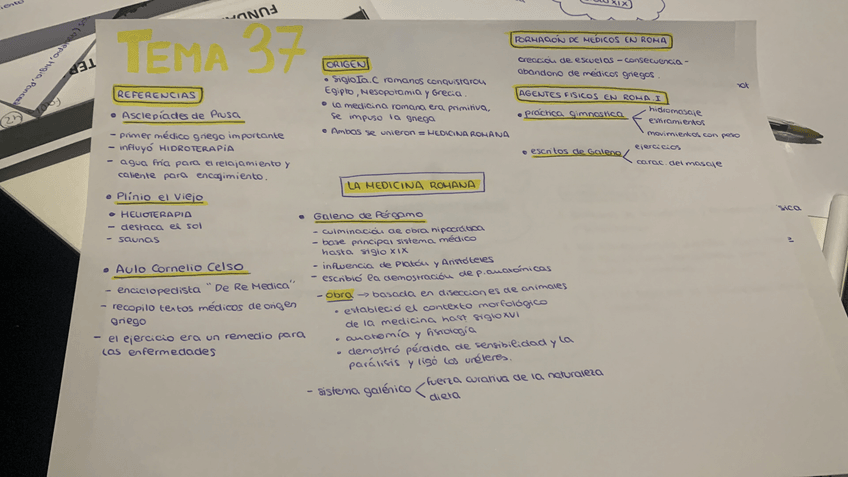 TEMA 37
REFERENCIAS
• Asclepíades de Prusa
- primer médico griego importante
- influyó HIDROTERAPIA
- agua fría para el relajamiento y
caliente para encogimiento.
• Plinio el Viejo
- HELIOTERAPIA
- destaca el sol
- saunas
• Aulo Cornelio Celso
- enciclopedista "De Re Medica"
- recopilo textos médicos de origen
griego
- el ejercicio era un remedio para
las enfermedades
ORIGEN
• Siglo I a.C romanos conquistarou
Egipto, Mesopotamia y Grecia.
• La medicina romana era primitiva,
se impuso la griega
• Ambas se unieron = MEDICINA ROMANA
LA MEDICINA ROMANA
• Galeno de Pérgamo
- culminación de obra hipocrática
- base principal sistema médico
hasta siglo XIX
- influencia de Platón y Aristóteles
- escribió la demostración de p. anatómicas
- obra → basada en disecciones de animales
• estableció el contexto morfológico
de la medicina hast siglo XVI
• anatomía y fisiología
• demostró pérdida de sensibilidad y la
parálisis y ligó los uréteres.
- sistema galénico < fuerza curativa de la naturaleza
dieta
FORMACIÓN DE MÉDICOS EN ROMA
creación de escuelas - consecuencia -
abandono de médicos griegos.
AGENTES FÍSICOS EN ROMA I
• práctica gimnostica < hidromasaje
estiramientos
movimientos con peso
• escritos de Galeno < ejercicios
carac. del masaje
FUNDA
XIX
sica